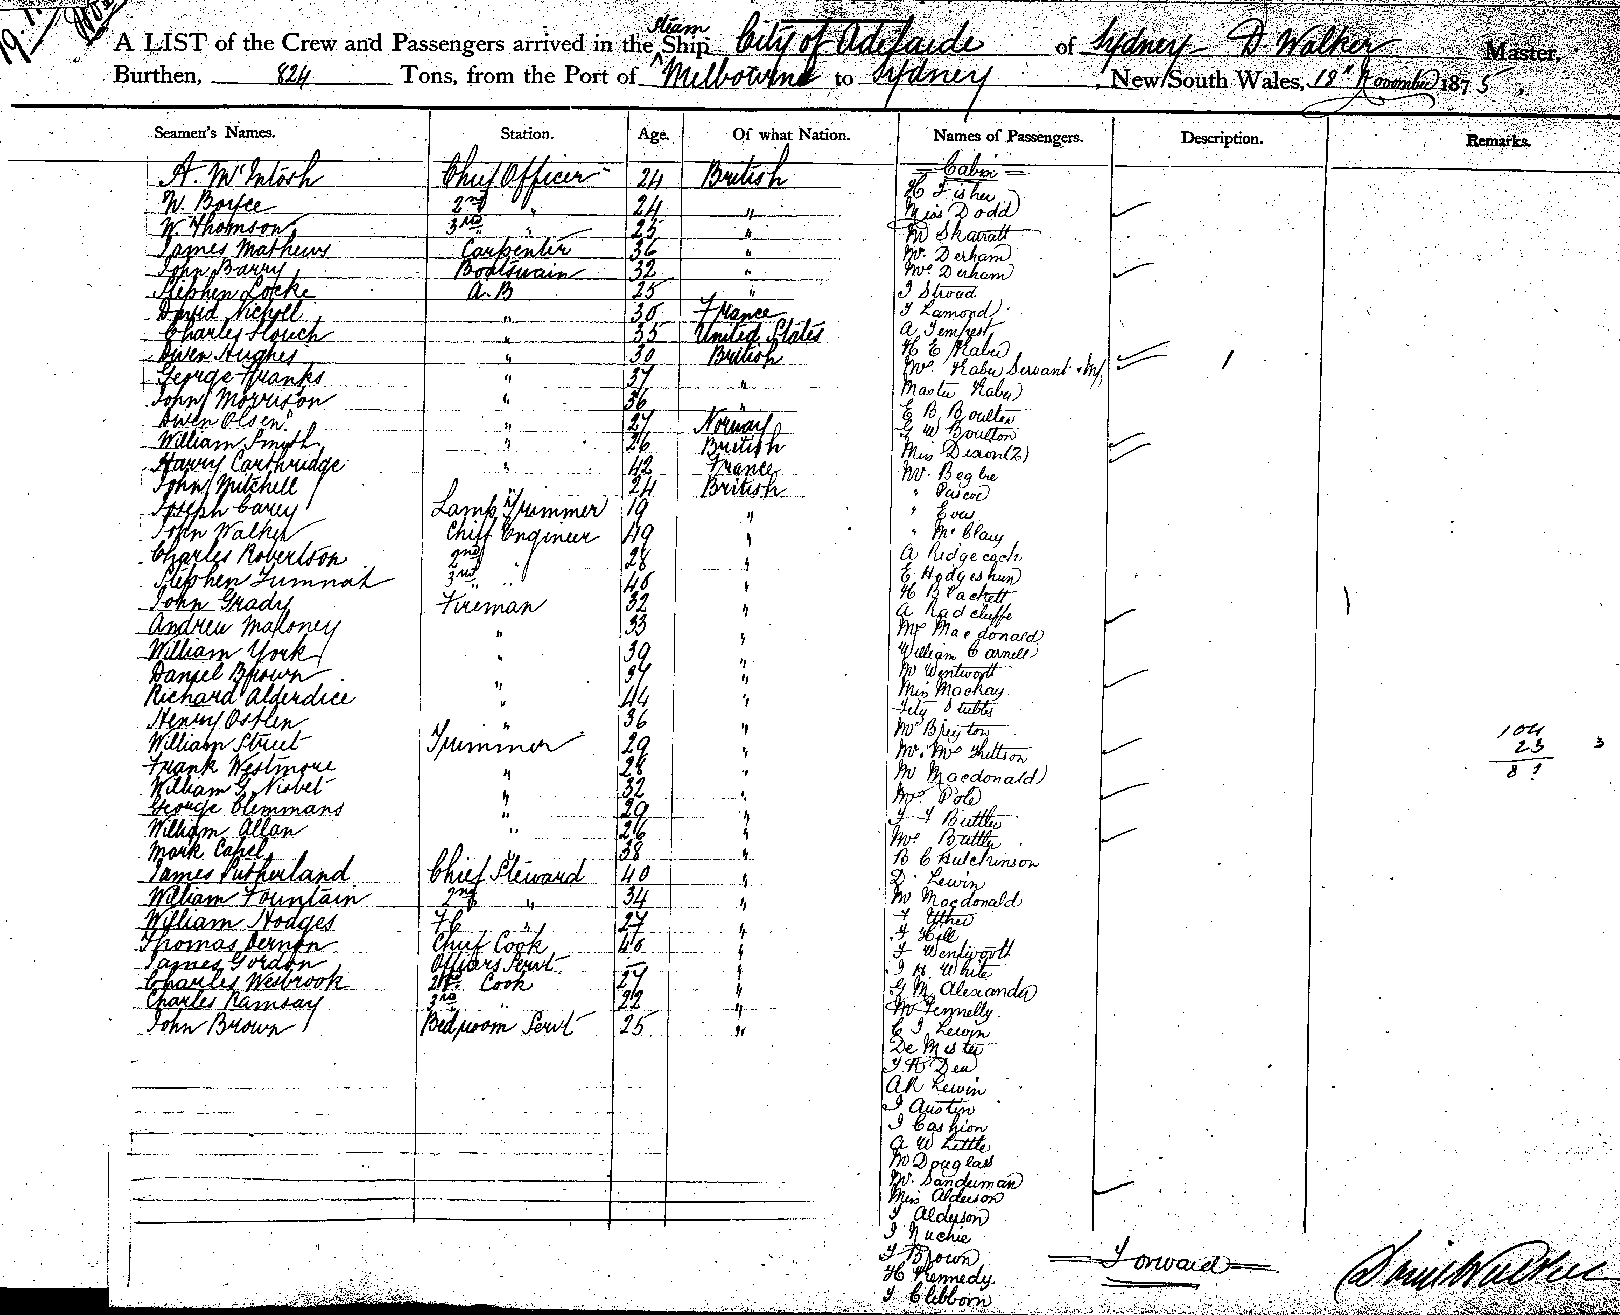 19.1.
A LIST of the Crew and Passengers arrived in the Steam Ship City of Adelaide of Sydney D. Walker Master,
Burthen, 824 Tons, from the Port of Melbourne to Sydney, New South Wales, 18th November 1875.
Seamen's Names. Station. Age. Of what Nation. Names of Passengers. Description. Remarks.
A. McIntosh Chief Officer 24 British
W. Boyce 2nd " 24 "
W. Thomson 3rd " 25 "
James Mathews Carpenter 36 "
John Barry Boatswain 32 "
Stephen Locke A.B 25 "
David Nicholl " 30 France
Charles " 35 United States
Owen Hughes " 30 British
George Franks " 37 "
John Morrison " 36 "
Owen Olsen " 27 Norway
William Smyth " 26 British
Harry Carthridge " 42 France
John Mitchell " 24 British
Joseph Carey Lamp Trimmer 19 "
John Walker Chief Engineer 49 "
Charles Robertson 2nd " 28 "
Stephen 3rd " 40 "
John Grady Fireman 32 "
Andrew Maloney " 33 "
William York " 39 "
Daniel Brown " 37 "
Richard Alderdice " 44 "
Henry " 36 "
William Street Trimmer 29 "
Frank Westmore " 28 "
William G. Nisbet " 32 "
George Clemmans " 29 "
William Allan " 26 "
Mark Capel " 38 "
James Sutherland Chief Steward 40 "
William Fountain 2nd " 34 "
William Hodges " 27 "
Thomas Vernon Chief Cook 40 "
James Gordon Officers Servt — "
Charles Wesbrook 2nd Cook 27 "
Charles Ramsay 3rd " 22 "
John Brown Bedroom Servt 25 "
Cabin
H Fisher
Miss Dodd
Mr Skarratt
Mr. Derham
Mrs Derham
J Stroud
J Lamond
A Tempest
H E Kater
Mrs Kater Servant + Inf,
Master Kater
E B Boulton
G W Boulton
Miss Dixon (2)
Mr. Begbie
" Pascoe
" Eves
" McClary
A Ridge
E
H B Lackett
A Radcliffe
Mrs Macdonald
William Carnell
Mr Wentworth
Miss Mackay
Stubbs
Mr
Mr. Mrs
Mr Macdonald
Mrs Pole
J F Buttler
Mrs Buttler
B C Hutchinson
D. Lewin
Mr Macdonald
F Uther
J Hill
F Wentworth
J H White
G M Alexander
Mr Fennelly
C J Lewin
De Mestre
J K Dea
A R Lewin
J Austin
J Cashion
A W Little
Mr Douglass
Mr. Sanduman
Miss Alderson
J Alderson
J Ruchie
J Brown
H Kennedy
J Clibborn
104
23
8?
3
Forward
Daniel Walker